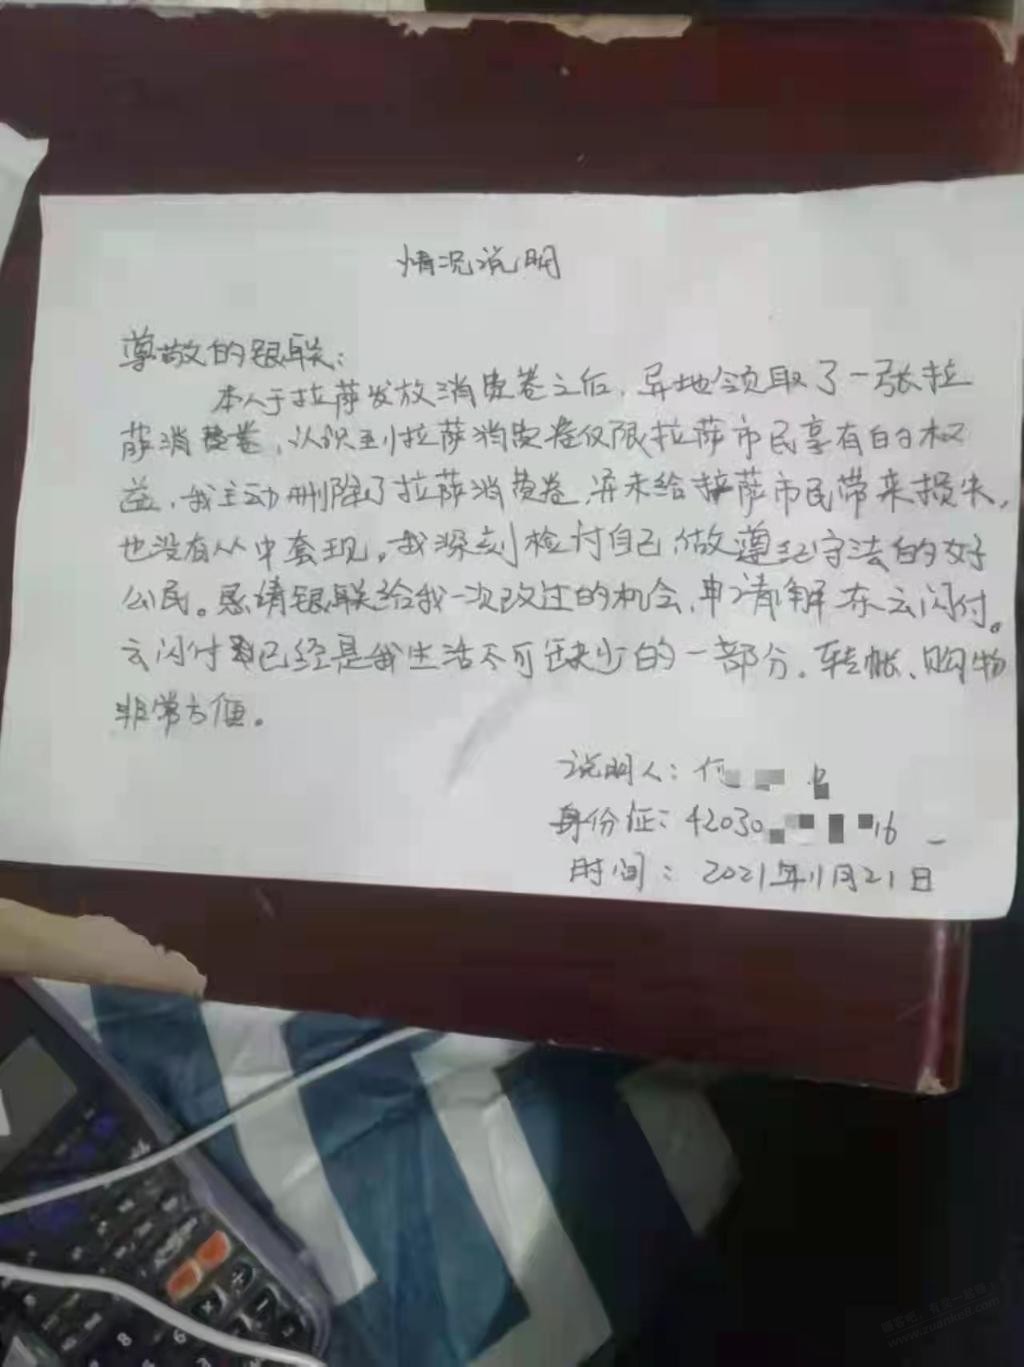 情况说明
尊敬的银联：
本人于拉萨发放消费卷之后，异地领取了一张拉
萨消费卷，认识到拉萨消费卷仅限拉萨市民享有的权
益，我主动删除了拉萨消费卷，并未给拉萨市民带来损失，
也没有从中套现。我深刻检讨自己做遵纪守法的好
公民。恳请银联给我一次改过的机会，申请解冻云闪付。
云闪付已经是我生活不可缺少的一部分。转帐、购物
非常方便。
说明人：何
身份证：42030 16
时间：2021年11月21日
www.zuanke8.com